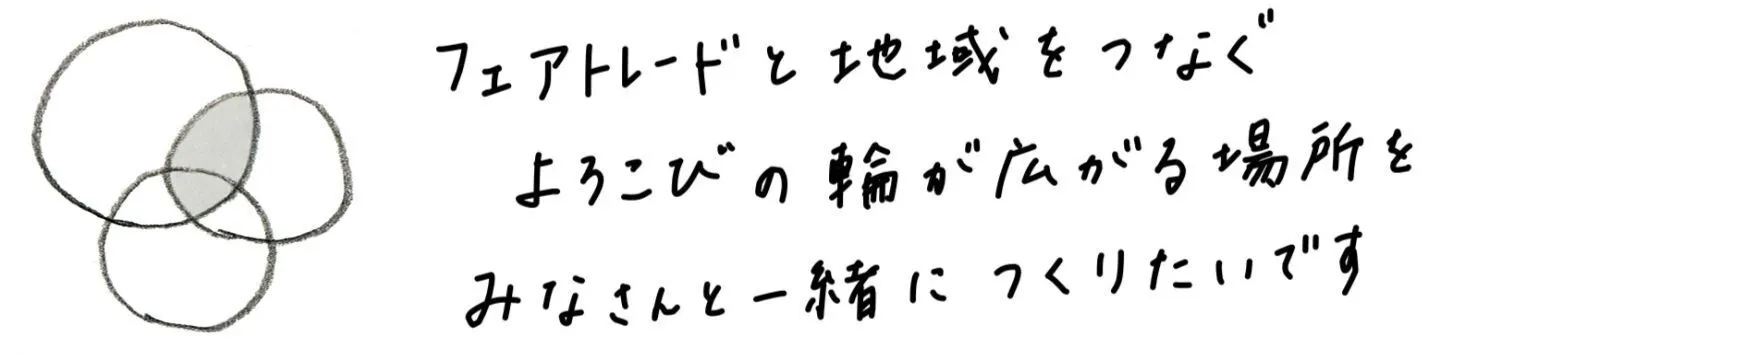 フェアトレードと地域をつなぐ
よろこびの輪が広がる場所を
みなさんと一緒につくりたいです